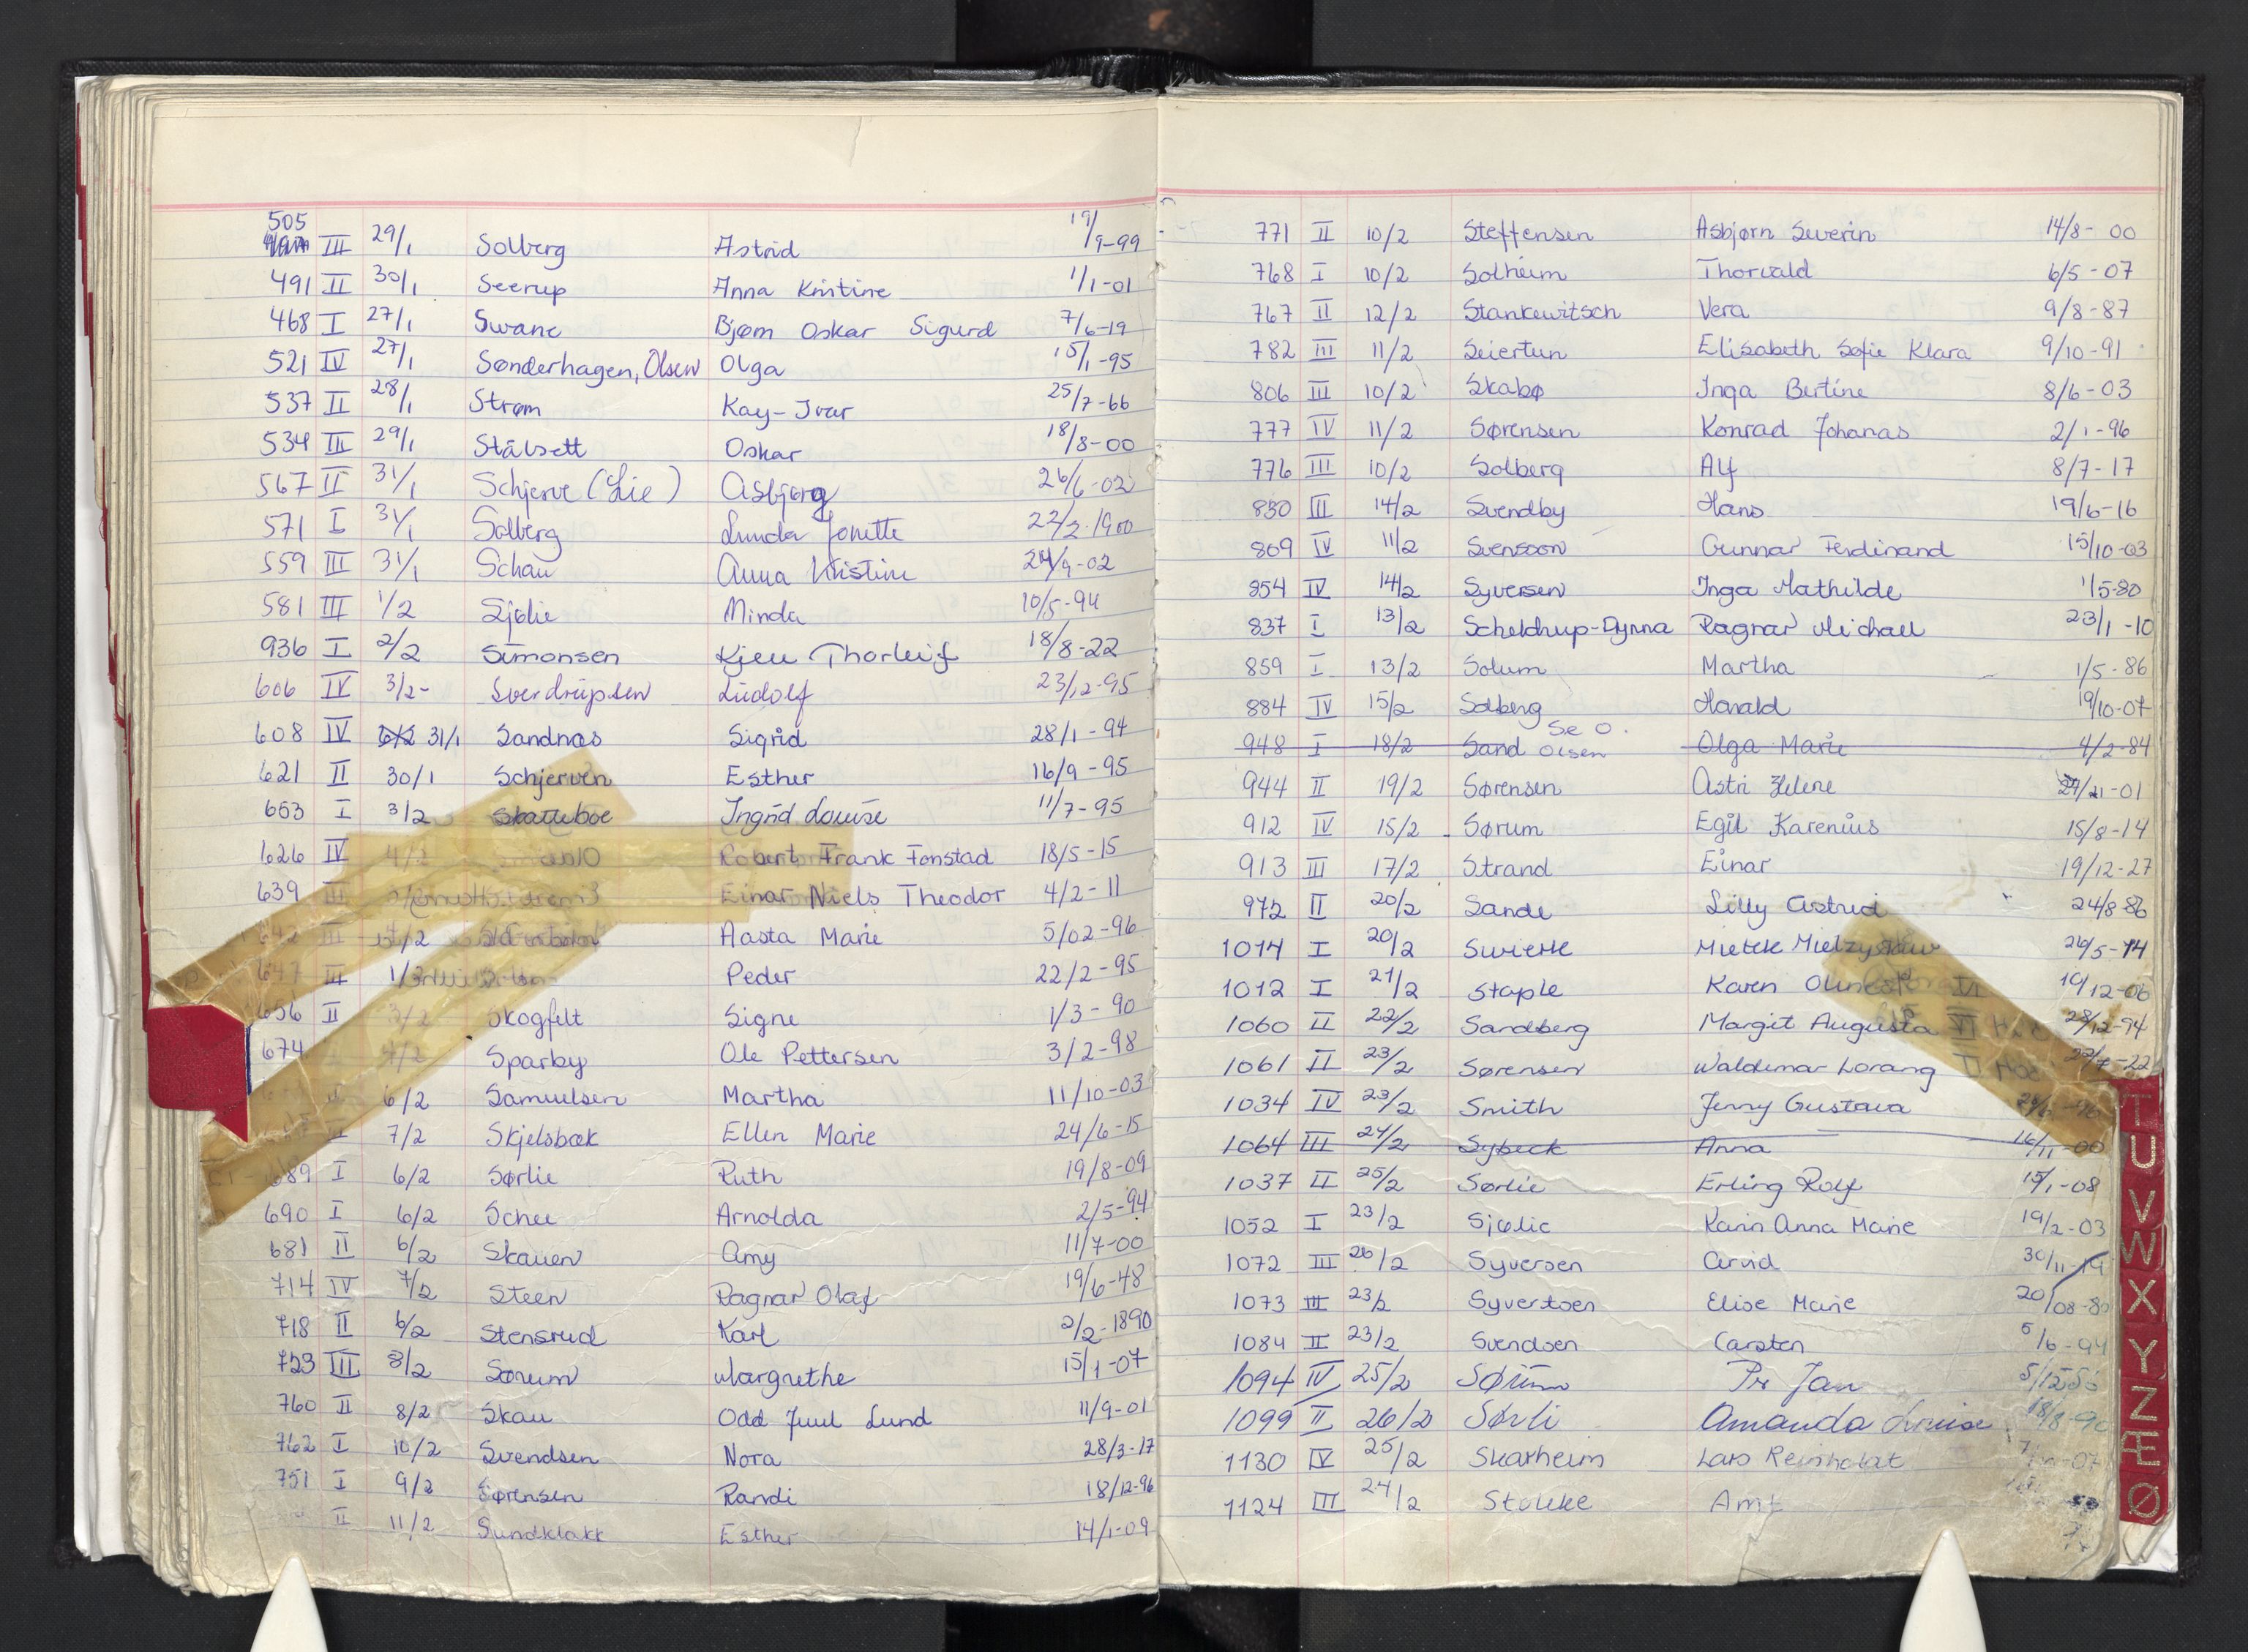 505 III 29/1 Solberg Astrid 19/9-99
491 II 30/1 Seerup Anna Kristine 1/1-01
468 I 27/1 Swane Bjørn Oskar Sigurd 7/6-19
521 IV 27/1 Sønderhagen, Olsen Olga 15/1-95
537 II 28/1 Strøm Kay-Ivar 25/7-66
534 III 29/1 Stålsett Oskar 18/8-00
567 II 31/1 Schjerve (Lie) Asbjørg 26/6-02
571 I 31/1 Solberg Lunda Jonette 22/2-1900
559 III 31/1 Schau Anna Kristine 24/9-02
581 III 1/2 Sjølie Minda 10/5-94
936 I 2/2 Simonsen Kjell Thorleif 18/8-22
606 IV 3/2- Sverdrupsen Ludolf 23/12-95
608 IV 31/1 Sandnas Sigrid 28/1-94
621 II 30/1 Schjerven Esther 16/9-95
653 I 3/2 Skatteboe Ingrid Louise 11/7-95
626 IV 4/2 Robert Frank Fonstad 18/5-15
639 III Einar Niels Theodor 4/2-11
642 III Aasta Marie 5/02-96
647 III Peder 22/2-95
656 II 3/2 Skogfelt Signe 1/3-90
674 Sparby Ole Pettersen 3/2-98
6/2 Samuelsen Martha 11/10-03
7/2 Skjelsbæk Ellen Marie 24/6-15
689 I 6/2 Sørlie Ruth 19/8-09
690 I 6/2 Schee Arnolda 2/5-94
681 II 6/2 Skauen Amy 11/7-00
714 IV 7/2 Steen Ragnar Olaf 19/6-48
718 II 6/2 Stensrud Karl 2/2-1890
723 III 8/2 Sørum Margrethe 15/1-07
760 II 8/2 Skau Odd Juul Lund 11/9-01
762 I 10/2 Svendsen Nora 28/3-17
751 I 9/2 Sørensen Randi 18/12-96
II 11/2 Sundklakk Esther 14/1-09
771 II 10/2 Steffensen Asbjørn Severin 14/8-00
768 I 10/2 Solheim Thorvald 6/5-07
767 II 12/2 Stankewitsch Vera 9/8-87
782 III 11/2 Seiertun Elisabeth Sofie Klara 9/10-91
806 III 10/2 Skabø Inga Bertine 8/6-03
777 IV 11/2 Sørensen Konrad Johanas 2/1-96
776 III 10/2 Solberg Alf 8/7-17
830 III 14/2 Svendby Hans 19/6-16
809 IV 11/2 Svensson Gunnar Ferdinand 15/10-03
854 IV 14/2 Syversen Inga Mathilde 1/5-80
837 I 13/2 Scheldrup-Dynna Ragnar Michael 23/1-10
859 I 13/2 Solum Martha 1/5-86
884 IV 15/2 Solberg Harald 19/10-07
Se O.
948 I 18/2 Sand Olsen Olga Marie 4/2-84
944 II 19/2 Sørensen Astri Helene 11-01
912 IV 15/2 Sørum Egil Karenius 15/8-14
913 III 17/2 Strand Einar 19/12-27
972 II 20/2 Sande Lilly Astrid 24/8 86
1014 I 20/2 Swierk Mietek Mielzyslaw 26/5-14
1012 I 21/2 Staple Karen 19/12-06
1060 II 22/2 Sandberg Margit Augusta 28/12-94
1061 II 23/2 Sørensen Waldemar Lorang 22/7-22
1034 IV 23/2 Smith Jenny Gustava
1064 III 24/2 Sybeck Anna 16/11-00
1037 II 25/2 Sørlie Erling Rolf 15/1-08
1052 I 23/2 Sjølie Karin Anna Marie 19/2-03
1072 III 26/2 Syversen Arvid 30/11-19
1073 III 23/2 Syvertsen Elise Marie 20/08-80
1084 II 23/2 Svendsen Carsten 5/6-94
1094 IV 25/2 Sørum Per Jan 5/12-
1099 II 26/2 Sørli Amanda Louise 18/8-90
1130 IV 25/2 Skarheim Lars Reinholdt -07
1124 III 24/2 Stokke
T
U
V
W
X
Y
Z
Æ
Ø